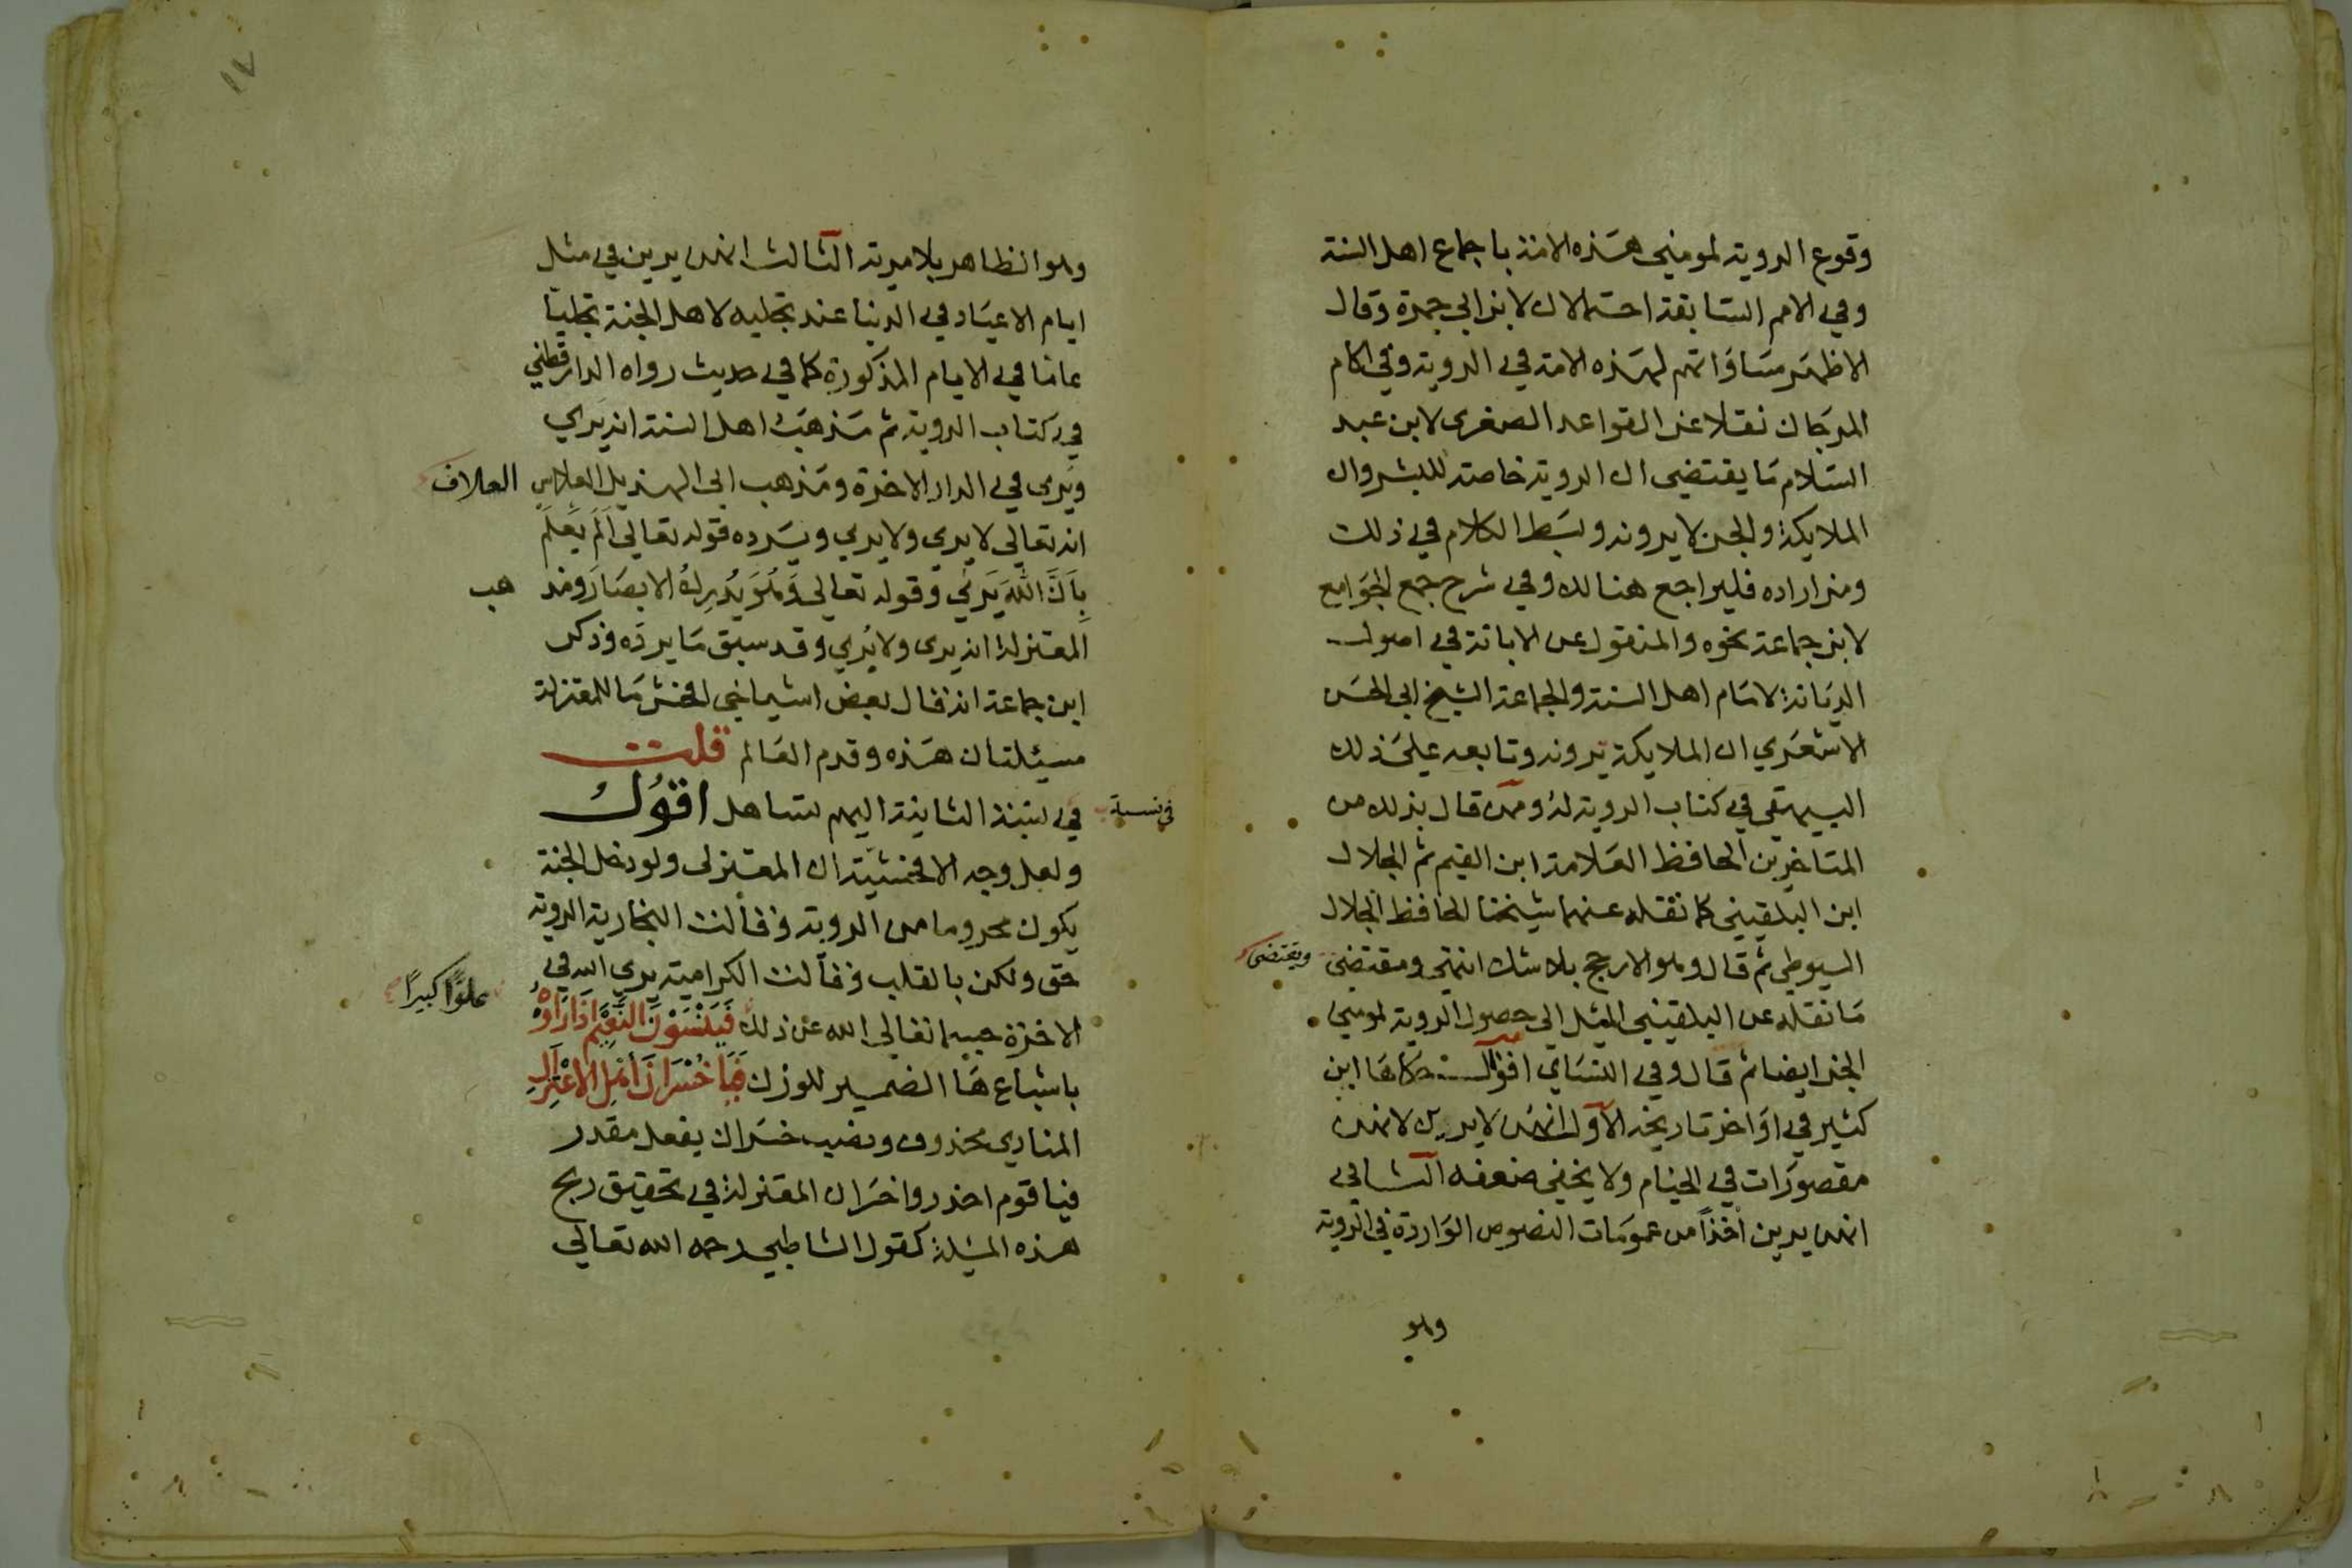 وقوع الروية لمومني هذه الامة باجماع اهل السنة
وفي الامم السابقة احتمالان لابن ابي جمرة وقال
الاظهر مساواتهم لهذه الامة في الروية وفي اكام
المرجان نقلا عن القواعد الصغرى لابن عبد
السلام ما يقتضى ان الروية خاصة للبشر وان
الملايكة والجن لا يرونه وبسط الكلام في ذلك
ومن اراده فليراجع هنالك وفي شرح جمع الجوامع
لابن جماعة نحوه والمنقول عن الابانة في اصول
الديانة لامام اهل السنة والجماعة الشيخ ابي الحسن
الاشعري ان الملايكة يرونه وتابعه علي ذلك
البيهقي في كتاب الروية له وممن قال بذلك من
المتاخرين الحافظ العلامة ابن القيم ثم الجلال
ابن البلقيني كما نقله عنهما شيخنا الحافظ الجلال
السيوطي ثم قال وهو الارجح بلا شك انتهى ومقتضى
ويقتضى
ما نقله عن البلقيني الميل الى حصول الروية لمومني
الجن ايضا ثم قال وفي النساي اقوال حكاها ابن
كثير في اواخر تاريخه الاول انهن لا يرين لانهن
مقصورات في الخيام ولا يخفى ضعفه الثاني
انهن يرين اخذاً من عمومات النصوص الواردة في الروية
وهو
١٧
وهو الظاهر بلا مرية الثالث انهن يرين في مثل
ايام الاعياد في الدنيا عند تجليه لاهل الجنة تجليا
عاما في الايام المذكورة كما في حديث رواه الدارقطني
في كتاب الروية ثم مذهب اهل السنة انه يَري
ويُرى في الدار الاخرة ومذهب ابى الهذيل العلاس
العلاف
انه تعالى لا يرى ولا يري ويرده قوله تعالى اَلَم يَعلَم
بِاَنَّ اللهَ يَرَي وقوله تعالى وَهُوَ يُدرِكُ الابصَارَ ومذ
هب
المعتزلة انه يرى ولا يُري وقد سبق ما يرده وذكر
ابن جماعة انه قال بعض اشياخي افحش ما للمعتزلة
مسيئلتان هذه وقدم العالم قلت
في نسبة الثانية اليهم تساهل اقوُلُ
في نسبة
ولعل وجه الافحشية ان المعتزلى ولو دخل الجنة
يكون محروما من الروية وقالت النجارية الروية
حق ولكن بالقلب وقالت الكرامية يري الله في
الاخرة جسما تعالى الله عن ذلك فَيَنْسَوْنَ النَّعِيْمَ اِذَا رَاَوْهُ
علوًّا كبيرًا
باشباع هَا الضمير للوزن فَيَا خُسْرَانَ اَهْلِ الاِعْتِزَالِ
المنادي محذوف ونصب خسران بفعل مقدر
فيا قوم احذروا خسران المعتزلة في تحقيق ربح
هذه المسٔلة كقول الشاطبي رحمه الله تعالي